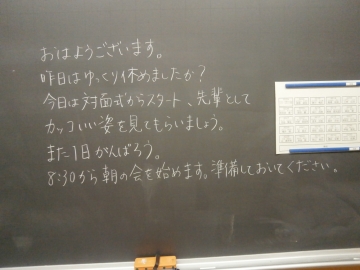 おはようございます。
昨日はゆっくり休めましたか？
今日は対面式からスタート、先輩として
カッコいい姿を見てもらいましょう。
また1日がんばろう。
8:30から朝の会を始めます。準備しておいてください。